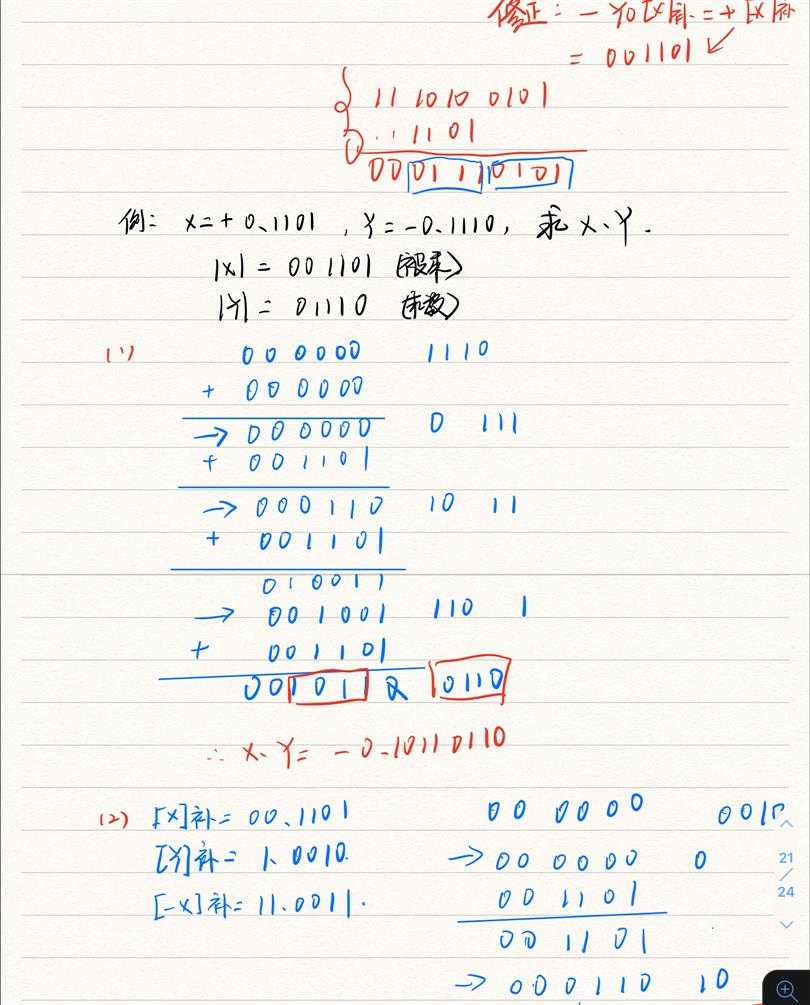 修正: - Y0[X]补 = + [X]补
= 001101
11 1010 0101
1101
00 0111 0101
例: X=+0.1101 , Y=-0.1110, 求 X·Y.
|X| = 001101 (被乘)
|Y| = 01110 (乘数)
(1) 00 0000 1110
+ 00 0000
→ 000000 0 111
+ 001101
→ 000110 10 11
+ 001101
010011
→ 001001 110 1
+ 001101
00 1011 0110
∴ X·Y = -0.10110110
(2) [X]补 = 00.1101 00 0000
[Y]补 = 1.0010. → 00 0000 0
[-X]补 = 11.0011. 00 1101
00 1101
→ 000110 10
21
/
24